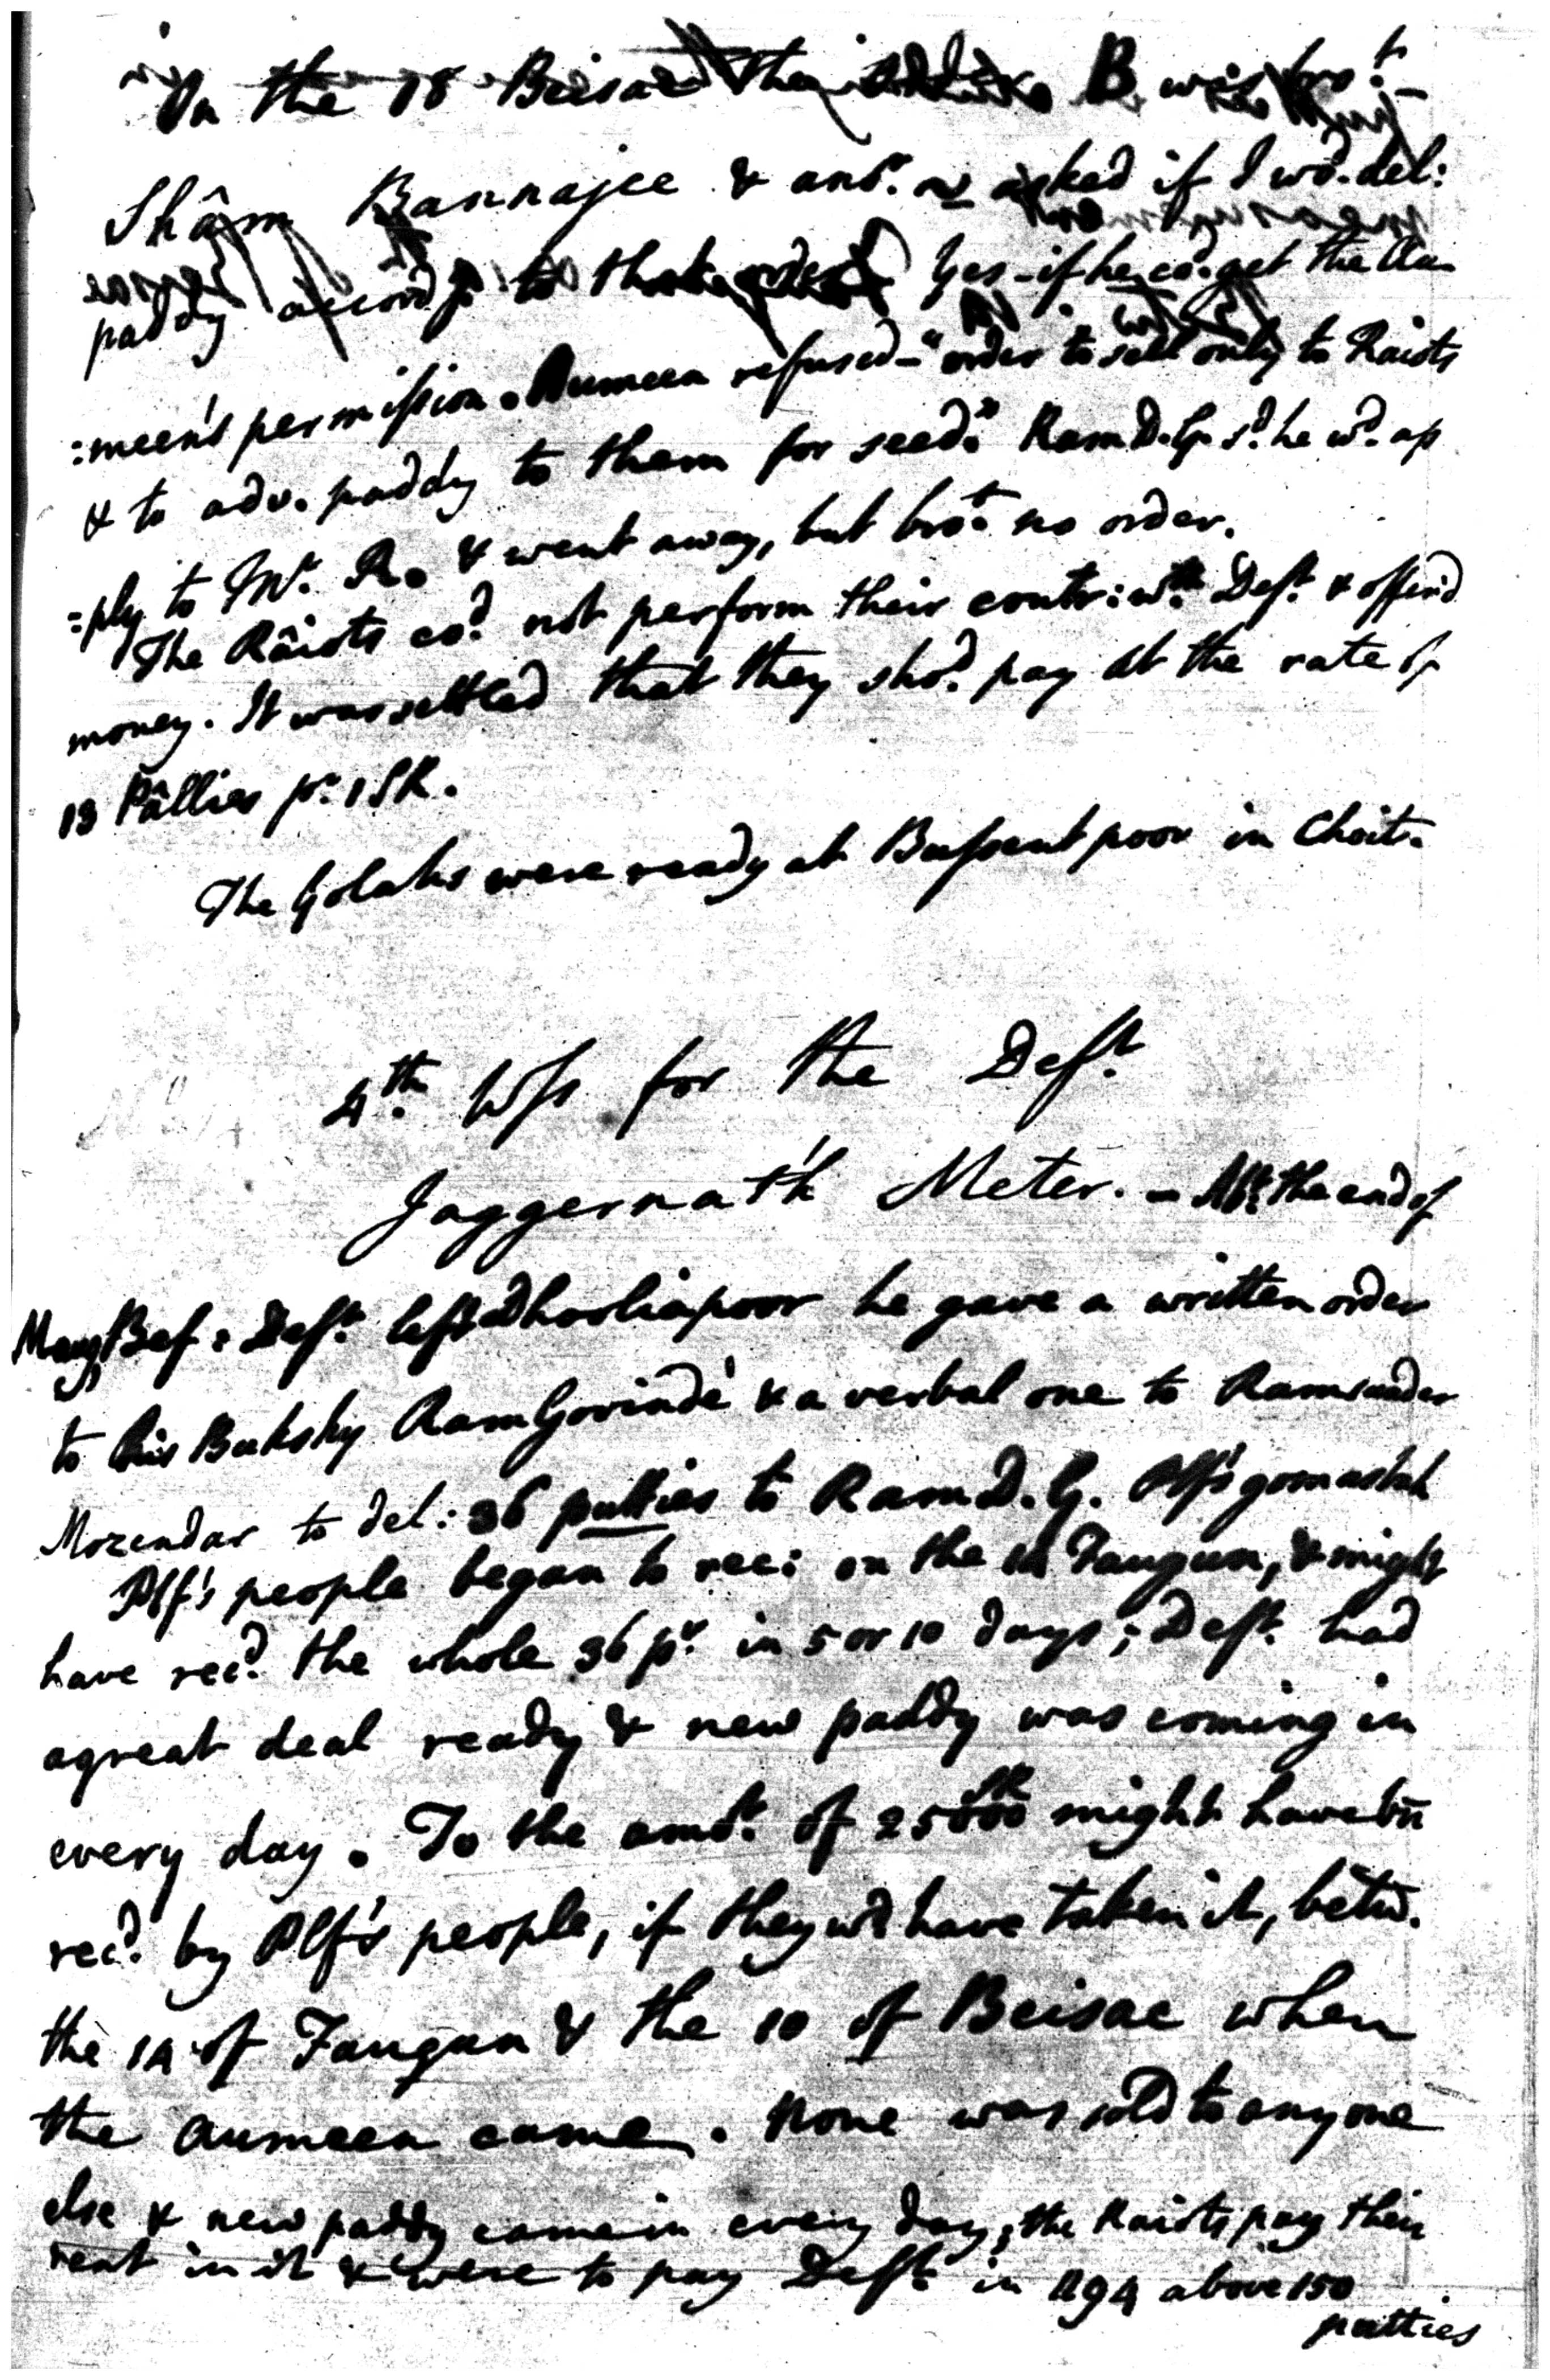 On the 18 Beisac the order B was bro.t
Shâm Bannajee & ano.r asked if I wo.d del:
paddy accord.g to that order Yes - if he co.d get the Au
:meen's permission. Aumeen refused - "order to sell only to Raiots
& to adv. paddy to them for seed." Ram D. G. s.d he w.d ap
=ply to Mr. R. & went away, but bro.t no order.
The Râiots co.d not perform their contr: w.th Def.t & offer'd
money. It was settled that they sho.d pay at the rate of
13 Pâllies pr. 1 SR.
The Golahs were ready at Bussentpoor in Choit.
4.th Wss for the Def.t
Jaggernath Meter. - Ab.t the end of
Maug Bef: Def.t left Dhooliapoor he gave a written order
to his Bukshy Ram Govinde & a verbal one to Ramsunder
Mozendar to del: 36 putties to Ram D. G. Plf's gomastah
Plf's people began to rec: on the 14 Faugun, & might
have rec.d the whole 36 p.s in 5 or 10 days; Def.t had
a great deal ready & new paddy was coming in
every day. To the amo.t of 25000 SR might have bn
rec.d by Plf's people, if they w.d have taken it, betw.
the 14 of Faugun & the 10 of Beisac when
the Aumeen came. None was sold to any one
else & new paddy came in every day; the Raiots pay their
rent in it & were to pay Def.t in 1194 above 150
putties